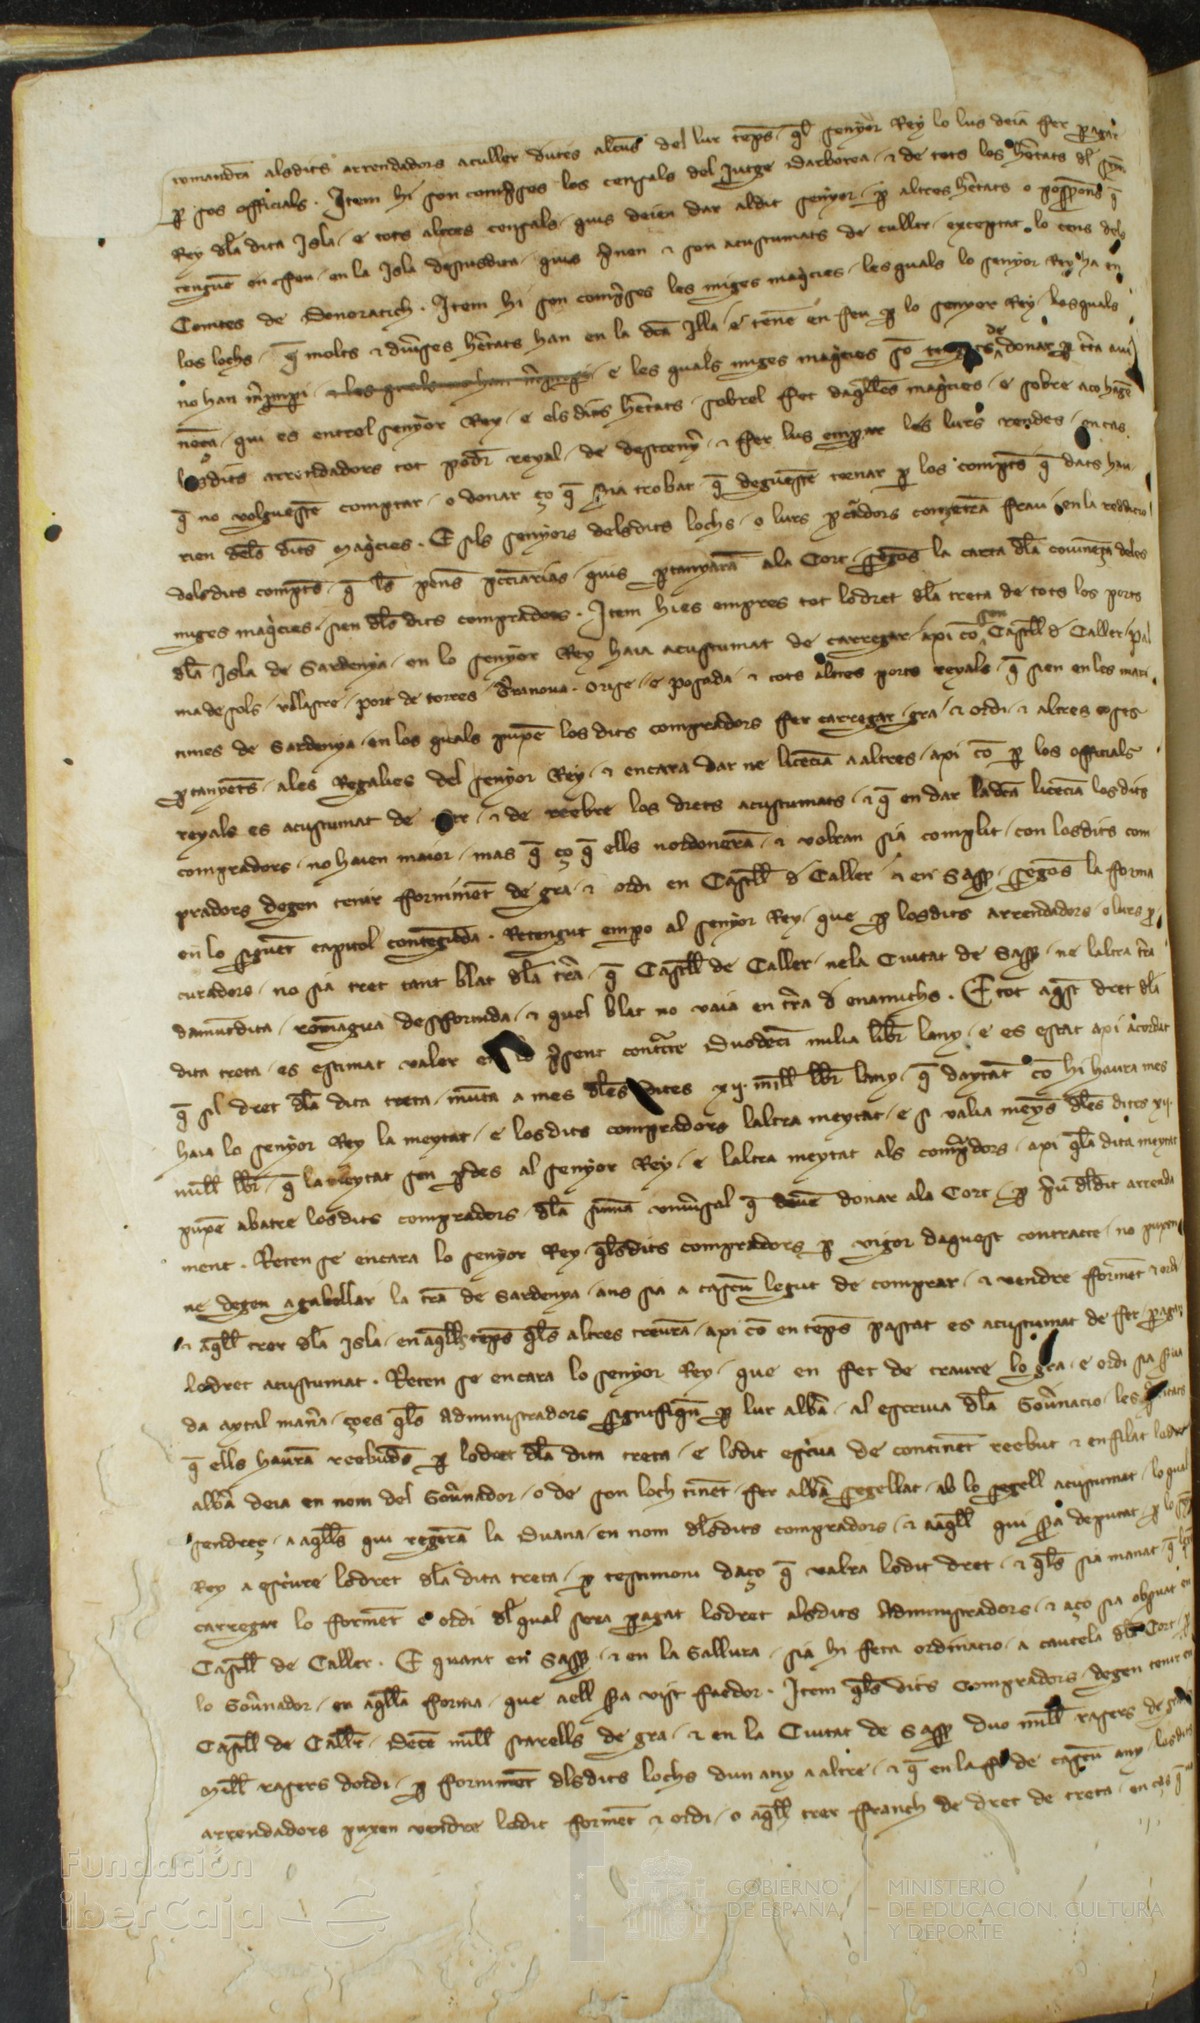 romandra alsdits arrendadors a culler dutes alcus del lur teps ql senyor Rey lo lus deia fer pagar
p sos officials. Item hi son compses los censals del Jutge Darborea & de tots los hetats dl
Rey dla dita Isla e tots altres censals quis deien dar aldit senyor p altres hetats o q
tengue en feu en la Isla desusdita quis pnen & son acustumats de culler exceptat lo cens dels
Comtes de Donoratich. Item hi son compses les miges maqicies lesquals lo senyor Rey ha en
los lochs q molts & diuses hetats han en la dca Illa e tene en feu p lo senyor Rey losquals
no han mp e les quals miges maqicies so de donar p cta aui
neca qui es entrel senyor Rey e els dits hetats sobrel fet daqlles maqicies e sobre aco hage
losdits arrendadors tot poder reyal de destreny & fer lus empar les lurs rendes en cas
q no volguesse comptar o donar ço q sia trobat q deguesse tornar p los compts q dats hau
rien dels dits maqicies. E sils senyors delsdits lochs o lurs pcadors cometra frau en la reddicio
delsdits compts q ls penes quis ptanyara ala Cort segons la carta dla couinença deles
miges maqicies sien dls dits compradors. Item hi es empres tot lodret dla treta de tots los ports
dla Isla de Sardenya en lo senyor Rey haia acustumat de carregar axi co Castell d Caller pal
ma de sols vllastre port de torres Terranoua Orise e posada & tots altres ports reyals q sien en les mari
times de Sardenya en los quals puxe los dits compradors fer carregar gra & ordi & altres coses
ptanyets ales Regalies del senyor Rey & encara dar ne licecia a altres axi co p los officials
reyals es acustumat de & de reebre los drets acustumats & q en dar ladca licecia losdits
compradors no haien maior mas q ço q ells nordonera & volran sia complit con losdits com
pradors degen tenir forniment de gra & ordi en Castell d Caller & en Sasser segons la forma
en lo seguet capitol contenguda. Retengut empo al senyor Rey que p losdits arrendadors o lurs p
curadors no sia tret tant blat dla tra q Castell de Caller nela Ciutat de Sasser ne laltra tra
damutdita romangua desfornida & quel blat no vaia en tra d enamichs. E tot aqst dret dla
dita treta es estimat valer en lo psent contcte Duodeci milia libr lany e es estat axi acordat
q sil dret dla dita treta muta a mes dles dites xij. mill lbr lany q daytat co hi haura mes
haia lo senyor Rey la meytat e losdits compradors laltra meytat e si valia meys dles dites xij.
mill lbr q la meytat sen pdes al senyor Rey e laltra meytat als compdors axi qla dita meytat
puxe abatre losdits compradors dla suma vniusal q deue donar ala Cort p pu dldit arrenda
ment. Reten se encara lo senyor Rey qlsdits compradors p vigor daquest contracte no puxen
ne degen agabellar la tra de Sardenya ans sia a cascu legut de comprar & vendre formet & ordi
& aqll trer dla Isla en aqlls teps qls altres treura axi co en teps passat es acustumat de fer pagan
lodret acustumat. Reten se encara lo senyor Rey que en fet de traure lo gra e ordi sia
da aytal mana çoes qls Administradors signifiqn p lur alba al escriua dla Gouernacio les
q ells haura reebuds p lodret dla dita treta e lodit escua de continet reebut & enfilat lodit
alba deia en nom del Gouernador o de son loch tinet fer alba segellat ab lo segell acustumat lo qual
endreç a aqlls qui regera la Duana en nom dlsdits compradors & aaqll qui sia deputat p lo
Rey a escure lodret dla dita treta p testimoni daço q valra lodit dret & qls sia manat q
carregat lo formet e ordi dl qual sera pagat lodret alsdits Administradors & aço sia obseruat en
Castell de Caller. E quant en Sasser & en la Gallura sia hi feta ordinacio a cautela dla Cort p
lo Gouernador en aqlla forma que aell sia vist faedor. Item qls dits Compradors degen tenir en
Castell de Caller Dece mill starells de gra & en la Ciutat de Sasser duo mill rasers de gra
mill rasers dordi p forniment dlsdits lochs dun any a altre & q en la fi de cascu any losdits
arrendadors puxen vendre lodit formet & ordi o aqll trer franch de dret de treta en cas q
Fundación
iberCaja
GOBIERNO
DE ESPAÑA
MINISTERIO
DE EDUCACIÓN, CULTURA
Y DEPORTE